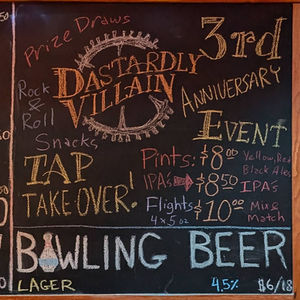 Prize Draws
DASTARDLY
VILLAIN
3rd
ANNIVERSARY
EVENT
Rock
&
Roll
Snacks
TAP
TAKE OVER!
Pints: $8.00 Yellow, Red
Black Ales
IPAs $8.50 IPAs
Flights $10.00 Mix &
4 x 5 oz Match
BOWLING BEER
LAGER 4.5% $6/18